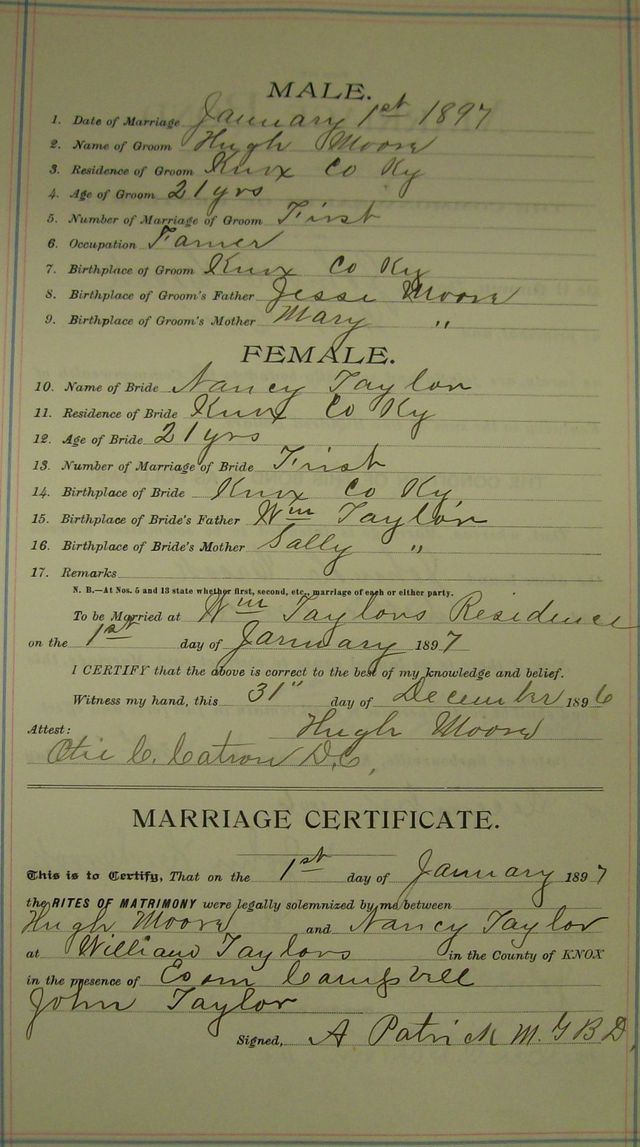 MALE.
1. Date of Marriage January 1st 1897
2. Name of Groom Hugh Moore
3. Residence of Groom Knox Co Ky
4. Age of Groom 21 yrs
5. Number of Marriage of Groom First
6. Occupation Farmer
7. Birthplace of Groom Knox Co Ky
8. Birthplace of Groom's Father Jesse Moore
9. Birthplace of Groom's Mother Mary "
FEMALE.
10. Name of Bride Nancy Taylor
11. Residence of Bride Knox Co Ky
12. Age of Bride 21 yrs
13. Number of Marriage of Bride First
14. Birthplace of Bride Knox Co Ky
15. Birthplace of Bride's Father Wm Taylor
16. Birthplace of Bride's Mother Sally "
17. Remarks
N. B.—At Nos. 5 and 13 state whether first, second, etc., marriage of each or either party.
To be Married at Wm Taylors Residence
on the 1st day of January 1897
I CERTIFY that the above is correct to the best of my knowledge and belief.
Witness my hand, this 31" day of December 1896
Hugh Moore
Attest:
C. Catron D.C.
MARRIAGE CERTIFICATE.
This is to Certify, That on the 1st day of January 1897
the RITES OF MATRIMONY were legally solemnized by me between
Hugh Moore and Nancy Taylor
at William Taylors in the County of KNOX
in the presence of Campbell
John Taylor
Signed, A Patrick M. G B D.